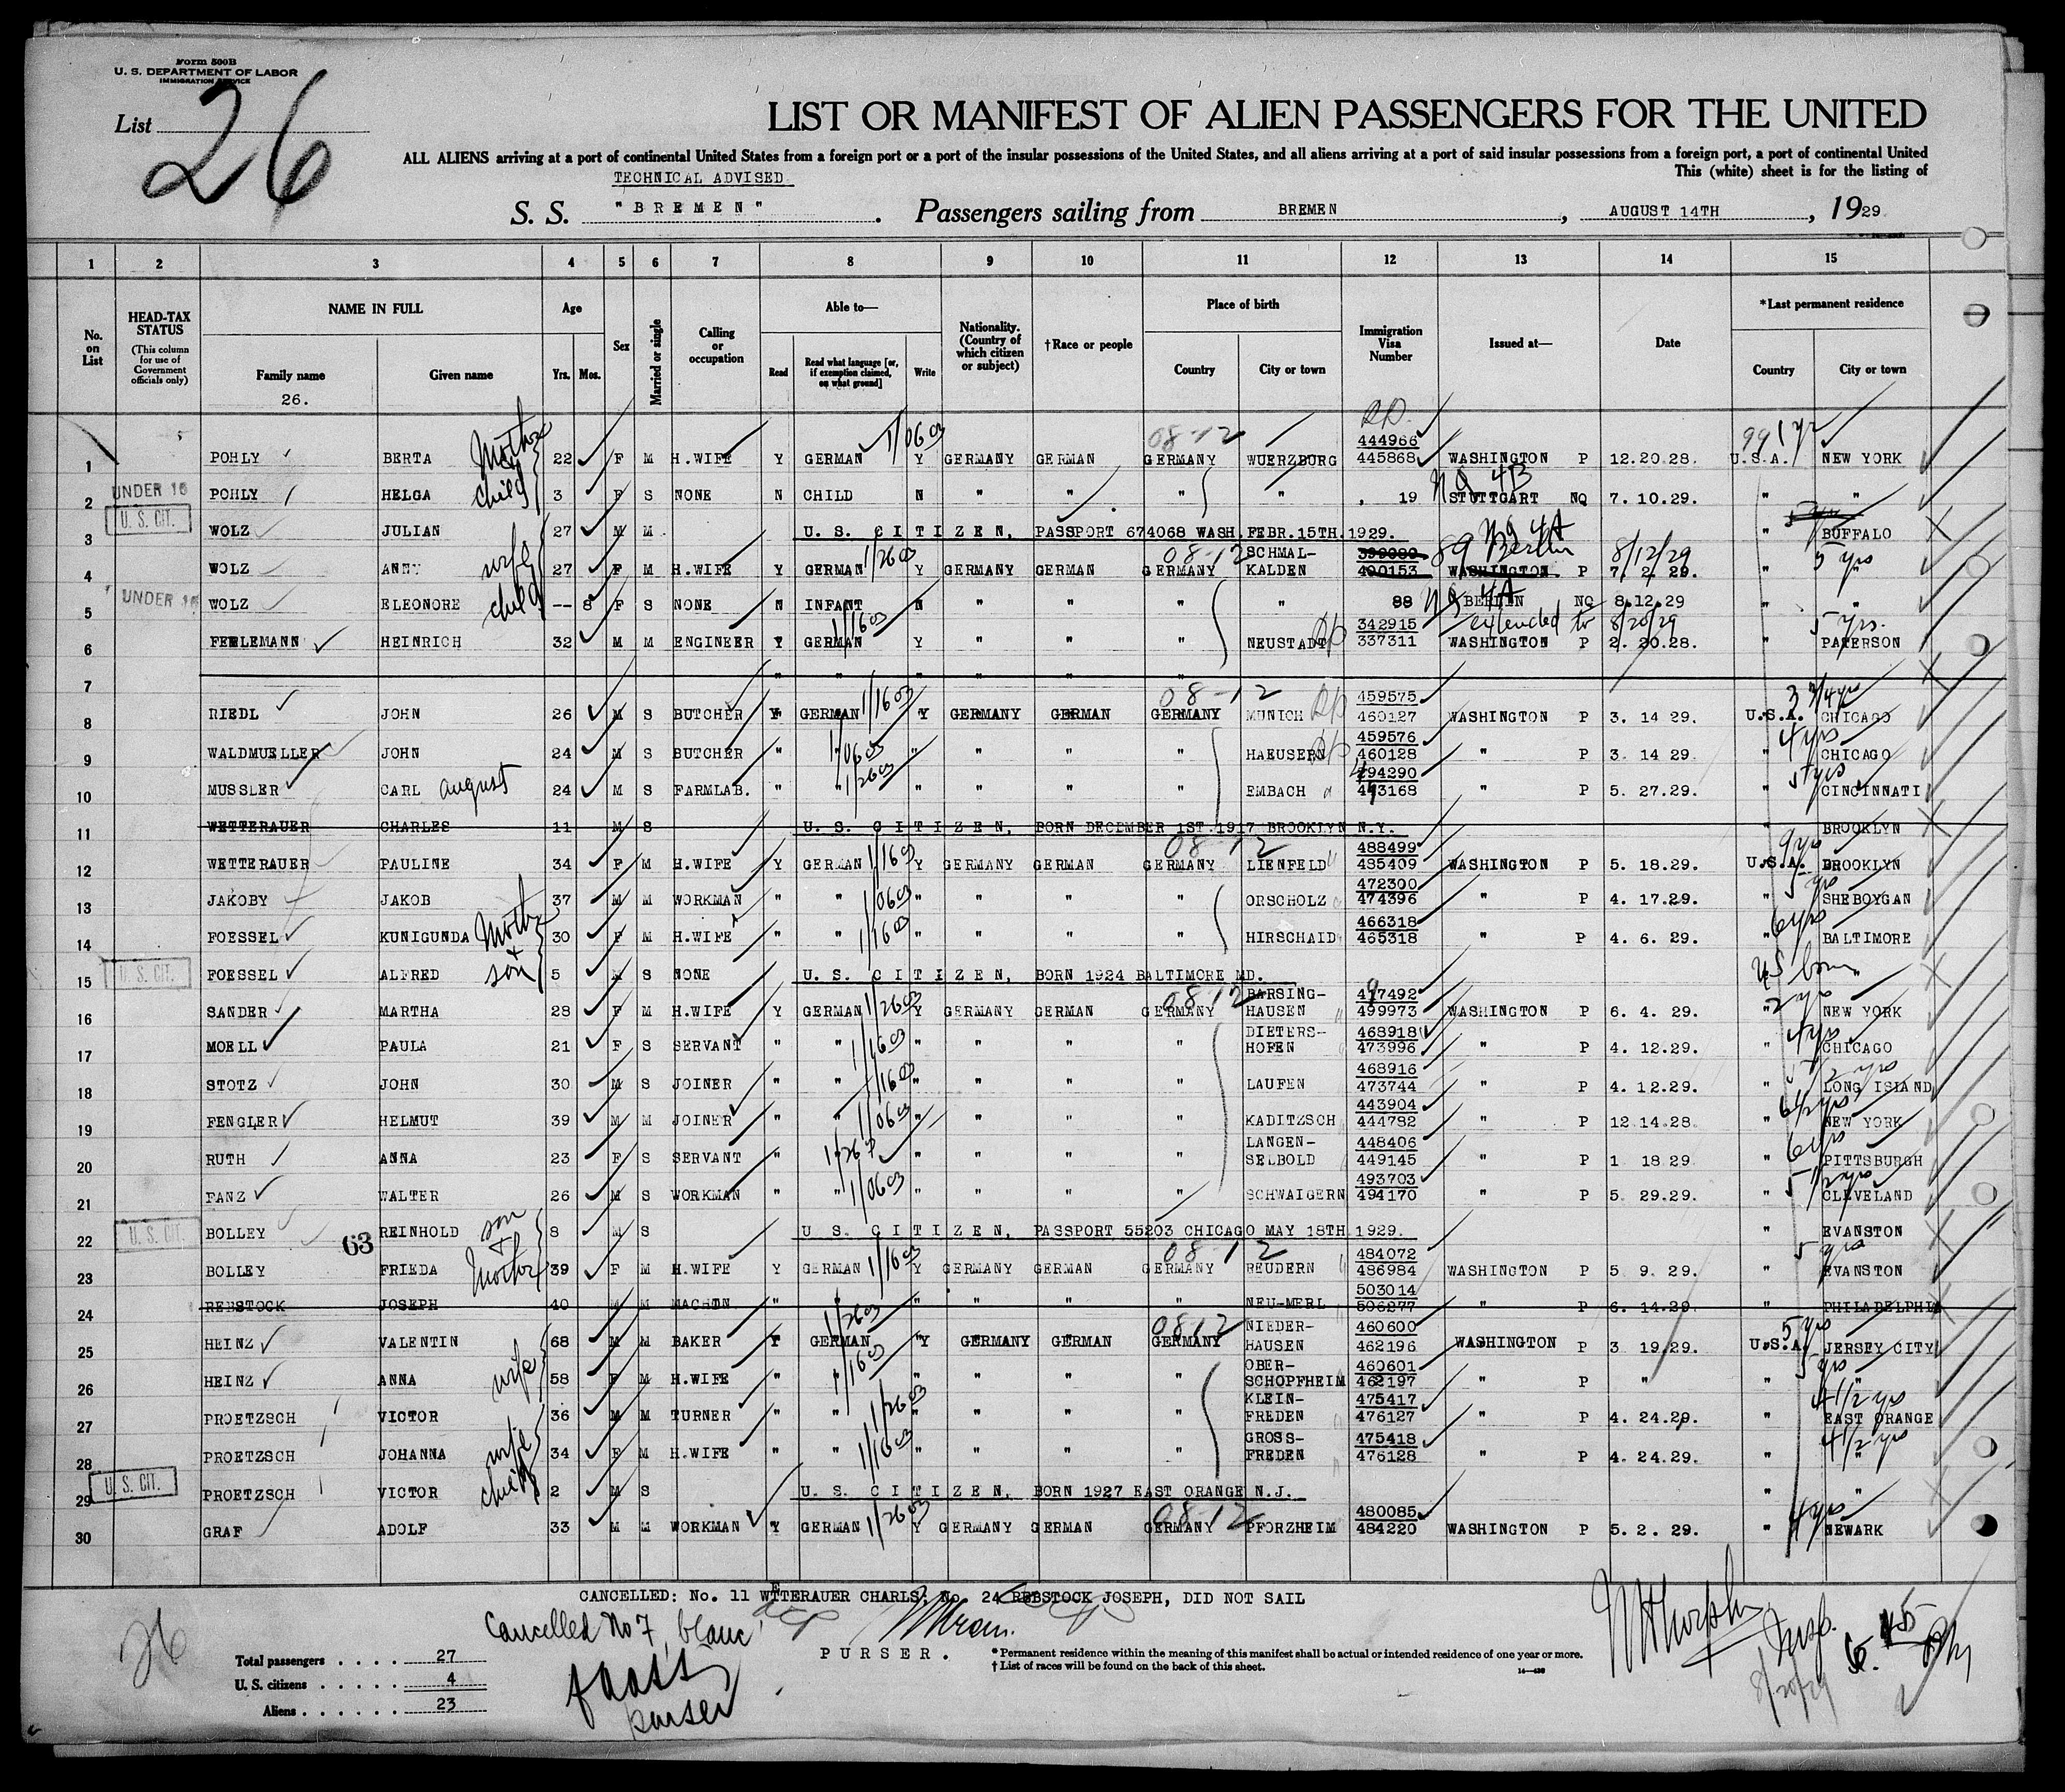 Form 500B
U. S. DEPARTMENT OF LABOR
IMMIGRATION SERVICE
List 26
LIST OR MANIFEST OF ALIEN PASSENGERS FOR THE UNITED
ALL ALIENS arriving at a port of continental United States from a foreign port or a port of the insular possessions of the United States, and all aliens arriving at a port of said insular possessions from a foreign port, a port of continental United
This (white) sheet is for the listing of
TECHNICAL ADVISED
S. S. "BREMEN". Passengers sailing from BREMEN, AUGUST 14TH, 1929.
1 2 3 4 5 6 7 8 9 10 11 12 13 14 15
No. on List HEAD-TAX STATUS (This column for use of Government officials only) NAME IN FULL Family name Given name Age Yrs. Mos. Sex Married or single Calling or occupation Able to— Read Read what language [or, if exemption claimed, on what ground] Write Nationality. (Country of which citizen or subject) †Race or people Place of birth Country City or town Immigration Visa Number Issued at— Date *Last permanent residence Country City or town
26.
1 POHLY BERTA Mother 22 F M H.WIFE Y GERMAN 1/0603 Y GERMANY GERMAN GERMANY 08-12 WUERZBURG 444966 445868 WASHINGTON P 12.20.28. U.S.A. 1 yr NEW YORK
2 UNDER 16 POHLY HELGA child 3 F S NONE N CHILD N " " " " 19 STUTTGART NQ 4B NQ 7.10.29. " "
3 U. S. CIT. WOLZ JULIAN 27 M M U. S. CITIZEN, PASSPORT 674068 WASH.FEBR.15TH.1929. " BUFFALO
4 WOLZ ANNY wife 27 F M H.WIFE Y GERMAN 1/2603 Y GERMANY GERMAN GERMANY 08-12 SCHMAL-KALDEN 400153 89 Berlin NQ 4A WASHINGTON P 8/12/29 7. 2. 29. 5 yrs "
5 UNDER 16 WOLZ ELEONORE child -- 8 F S NONE N INFANT N " " " " 88 BERLIN NQ 4A NQ 8.12.29 " "
6 FEHLEMANN HEINRICH 32 M M ENGINEER Y GERMAN 1/1603 Y " " " NEUSTADT 342915 337311 extended to 8/20/29 WASHINGTON P 2. 20.28. " 5 yrs. PATERSON
7
8 RIEDL JOHN 26 M S BUTCHER Y GERMAN 1/1603 Y GERMANY GERMAN GERMANY 08-12 MUNICH 459575 460127 WASHINGTON P 3. 14 29. U.S.A. 3 3/4 yrs CHICAGO
9 WALDMUELLER JOHN 24 M S BUTCHER " " 1/0603 " " " " HAEUSERN 459576 460128 " P 3. 14 29. " 4 yrs CHICAGO
10 MUSSLER CARL August 24 M S FARMLAB. " " 1/2603 " " " " EMBACH 494290 493168 " P 5. 27.29. " CINCINNATI
11 WETTERAUER CHARLES 11 M S U. S. CITIZEN, BORN DECEMBER 1ST.1917 BROOKLYN N.Y. BROOKLYN
12 WETTERAUER PAULINE 34 F M H.WIFE Y GERMAN 1/1603 Y GERMANY GERMAN GERMANY 08-12 LIENFELD 488499 485409 WASHINGTON P 5. 18.29. U.S.A. 9 yrs BROOKLYN
13 JAKOBY JAKOB 37 M M WORKMAN " " 1/0603 " " " " ORSCHOLZ 472300 474396 " P 4. 17.29. " 5 yrs SHEBOYGAN
14 FOESSEL KUNIGUNDA Mother + 30 F M H.WIFE " " 1/1603 " " " " HIRSCHAID 466318 465318 " P 4. 6. 29. " 6 yrs BALTIMORE
15 U. S. CIT. FOESSEL ALFRED son 5 M S NONE U. S. CITIZEN, BORN 1924 BALTIMORE MD. US born "
16 SANDER MARTHA 28 F M H.WIFE Y GERMAN 1/2603 Y GERMANY GERMAN GERMANY 08-12 BARSING-HAUSEN 497492 499973 WASHINGTON P 6. 4. 29. " 2 yrs NEW YORK
17 MOELL PAULA 21 F S SERVANT " " 1/1603 " " " " DIETERS-HOFEN 468918 473996 " P 4. 12.29. " 4 yrs CHICAGO
18 STOTZ JOHN 30 M S JOINER " " 1/1603 " " " " LAUFEN 468916 473744 " P 4. 12.29. " LONG ISLAND
19 FENGLER HELMUT 39 M M JOINER " " 1/0603 " " " " KADITZSCH 443904 444782 " P 12.14.28. " NEW YORK
20 RUTH ANNA 23 F S SERVANT " " " " " " LANGEN-SELBOLD 448406 449145 " P 1 18 29. " 6 yrs PITTSBURGH
21 FANZ WALTER 26 M S WORKMAN " " 1/0603 " " " " SCHWAIGERN 493703 494170 " P 5. 29.29. " 5 1/2 yrs CLEVELAND
22 U. S. CIT. BOLLEY 63 REINHOLD son + 8 M S U. S. CITIZEN, PASSPORT 55203 CHICAGO MAY 18TH.1929. " EVANSTON
23 BOLLEY FRIEDA Mother 39 F M H.WIFE Y GERMAN 1/1603 Y GERMANY GERMAN GERMANY 08-12 REUDERN 484072 486984 WASHINGTON P 5 9. 29. " 5 yrs EVANSTON
24 REBSTOCK JOSEPH 40 M M MACHIN. " " " " " " NEU-MERL 503014 506277 " P 6. 14.29. " PHILADELPHIA
25 HEINZ VALENTIN 68 M M BAKER Y GERMAN 1/2603 Y GERMANY GERMAN GERMANY 0812 NIEDER-HAUSEN 460600 462196 WASHINGTON P 3 19.29. U.S.A. 5 yrs JERSEY CITY
26 HEINZ ANNA wife 58 F M H.WIFE " " 1/1603 " " " " OBER-SCHOPFHEIM 460601 462197 " P " " 5 yrs "
27 PROETZSCH VICTOR 36 M M TURNER " " 1/2603 " " " " KLEIN-FREDEN 475417 476127 " P 4. 24.29. " 4 1/2 yrs EAST ORANGE
28 PROETZSCH JOHANNA wife 34 F M H.WIFE " " 1/1603 " " " " GROSS-FREDEN 475418 476128 " P 4. 24.29. " 4 1/2 yrs "
29 U. S. CIT. PROETZSCH VICTOR child 2 M S U. S. CITIZEN, BORN 1927 EAST ORANGE N.J. " "
30 GRAF ADOLF 33 M M WORKMAN Y GERMAN 1/2603 Y GERMANY GERMAN GERMANY 08-12 PFORZHEIM 480085 484220 WASHINGTON P 5. 2. 29. " 4 yrs NEWARK
CANCELLED: No. 11 WETTERAUER CHARLS, No. 24 REBSTOCK JOSEPH, DID NOT SAIL
Cancelled No 7, blanc
26
purser
PURSER.
Total passengers . . . . 27
U. S. citizens . . . . . 4
Aliens . . . . . . 23
*Permanent residence within the meaning of this manifest shall be actual or intended residence of one year or more.
†List of races will be found on the back of this sheet.
Insp.
8/20/29